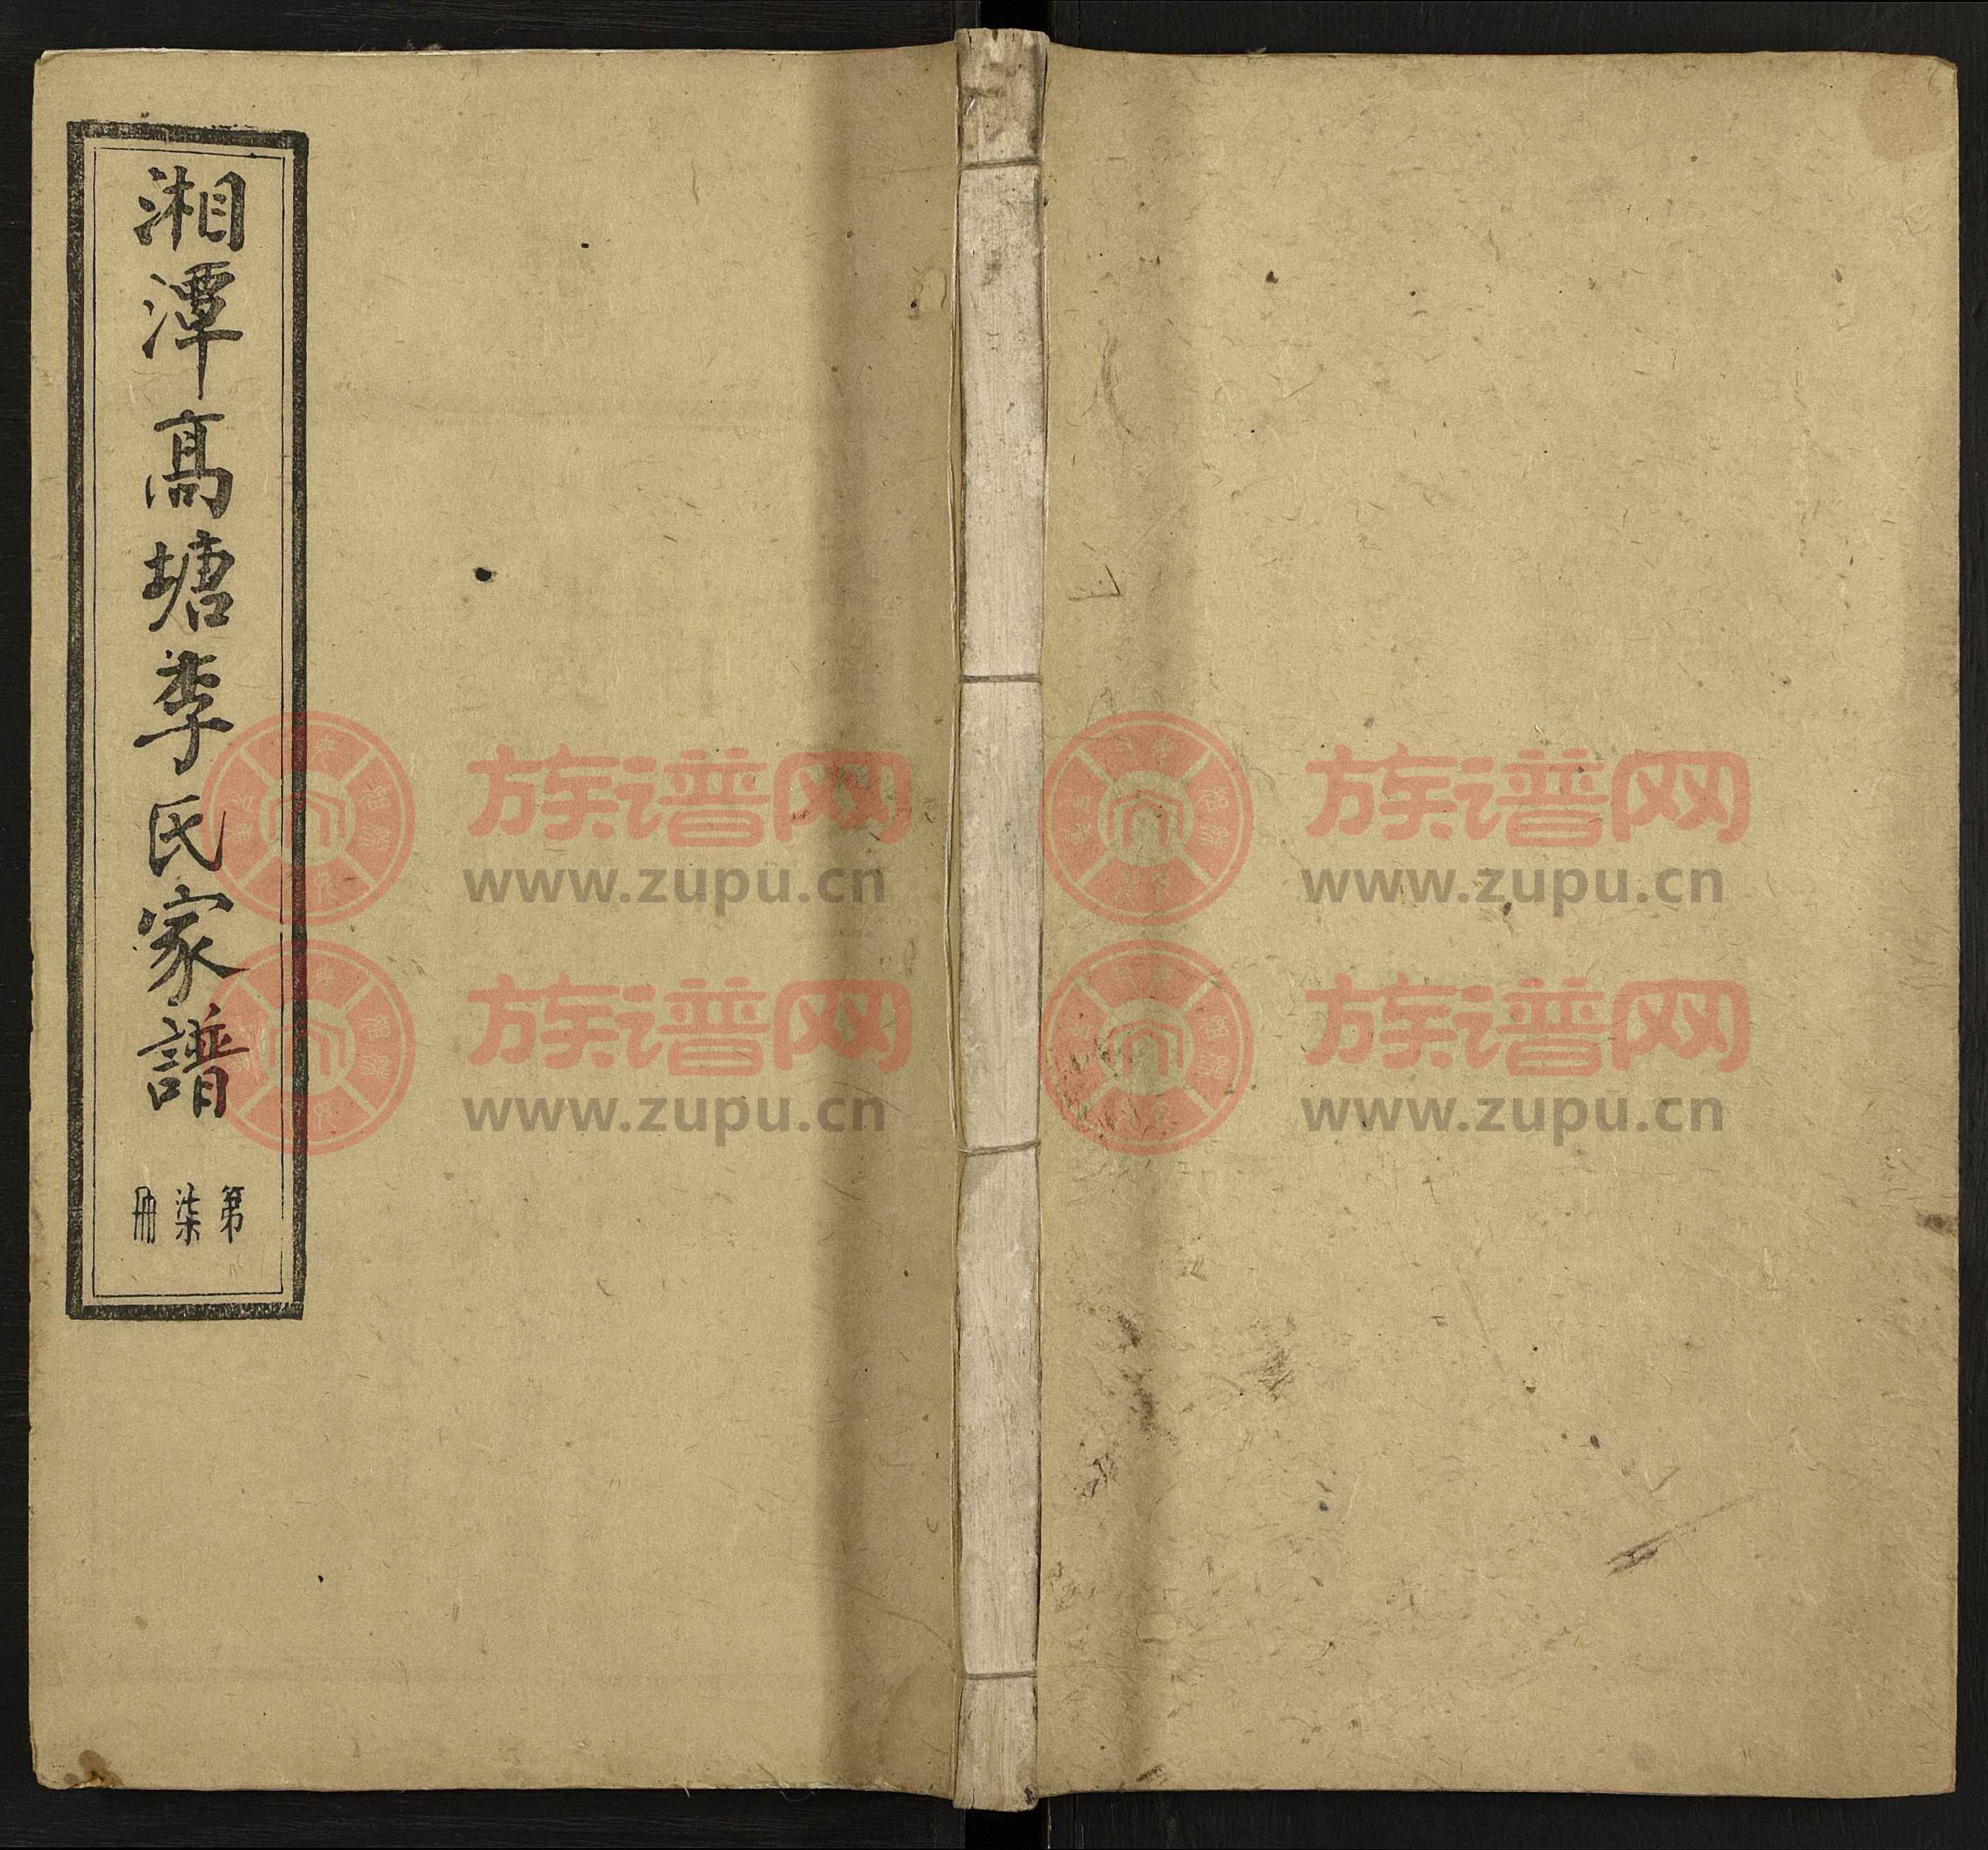 湘潭高塘李氏家譜
第柒冊
族谱网
www.zupu.cn
族谱网
www.zupu.cn
族谱网
www.zupu.cn
族谱网
www.zupu.cn